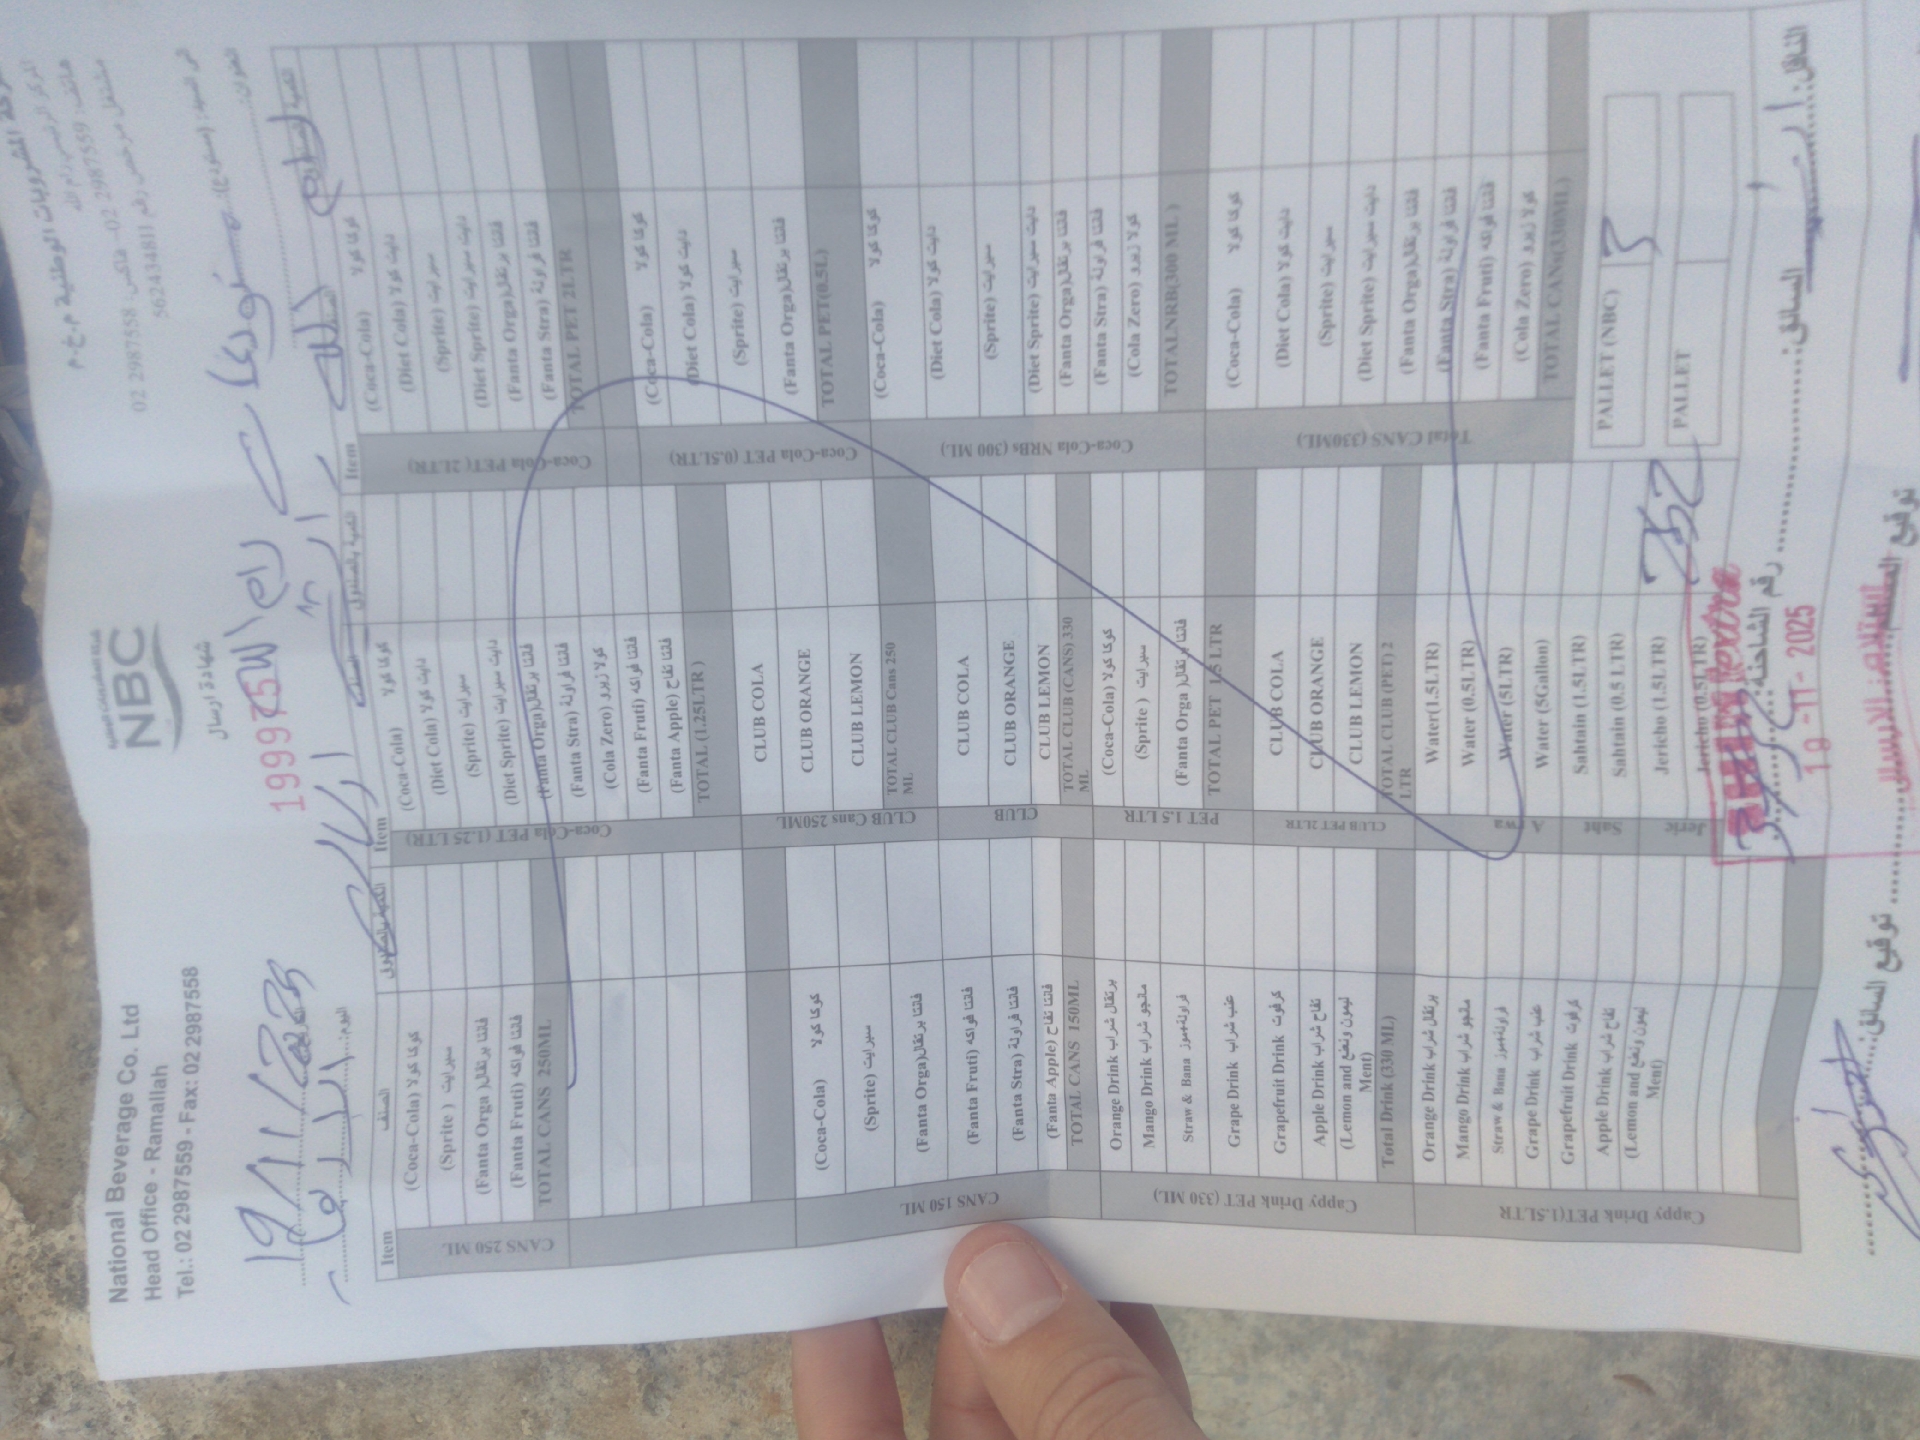 National Beverage Co. Ltd
Head Office - Ramallah
Tel.: 02 2987559 - Fax: 02 2987558
NBC
شهادة ارسال
شركة المشروبات الوطنية م.خ.م
المركز الرئيسي رام الله
هاتف: 2987559 02 - فاكس: 2987558 02
مشتغل مرخص رقم 562434811
19/11/2025
اليوم:
Item
الصنف
الكمية بالصندوق
CANS 250 ML
(Coca-Cola) كوكا كولا
(Sprite ) سبرايت
(Fanta Orga )فانتا برتقال
(Fanta Fruti) فانتا فواكه
TOTAL CANS 250ML
CANS 150 ML
(Coca-Cola) كوكا كولا
(Sprite) سبرايت
(Fanta Orga)فانتا برتقال
(Fanta Fruti) فانتا فواكه
(Fanta Stra) فانتا فراولة
(Fanta Apple) فانتا تفاح
TOTAL CANS 150ML
Cappy Drink PET (330 ML)
Orange Drink برتقال شراب
Mango Drink مانجو شراب
Straw & Bana فراولة+موز
Grape Drink عنب شراب
Grapefruit Drink كرفوت
Apple Drink تفاح شراب
(Lemon and ليمون ونعنع
Ment)
Total Drink (330 ML)
Cappy Drink PET(1.5LTR
Orange Drink برتقال شراب
Mango Drink مانجو شراب
Straw & Bana فراولة+موز
Grape Drink عنب شراب
Grapefruit Drink كرفوت
Apple Drink تفاح شراب
(Lemon and ليمون ونعنع
Ment)
Item
الصنف
الكمية بالصندوق
Coca-Cola PET (1.25 LTR)
(Coca-Cola) كوكا كولا
(Diet Cola) دايت كولا
(Sprite) سبرايت
(Diet Sprite) دايت سبرايت
(Fanta Orga)فانتا برتقال
(Fanta Stra) فانتا فراولة
(Cola Zero) كولا زيرو
(Fanta Fruti) فانتا فواكه
(Fanta Apple) فانتا تفاح
TOTAL (1.25LTR )
CLUB Cans 250ML
CLUB COLA
CLUB ORANGE
CLUB LEMON
TOTAL CLUB Cans 250
ML
CLUB
CLUB COLA
CLUB ORANGE
CLUB LEMON
TOTAL CLUB (CANS) 330
ML
PET 1.5 LTR
(Coca-Cola) كوكا كولا
(Sprite ) سبرايت
(Fanta Orga )فانتا برتقال
TOTAL PET 1.5 LTR
CLUB PET 2LTR
CLUB COLA
CLUB ORANGE
CLUB LEMON
TOTAL CLUB (PET) 2
LTR
Water(1.5LTR)
Water (0.5LTR)
Water (5LTR)
Water (5Gallon)
Saht
Sahtain (1.5LTR)
Sahtain (0.5 LTR)
Jeric
Jericho (1.5LTR)
Jericho (0.5LTR)
252
Item
Coca-Cola PET ( 2LTR)
(Coca-Cola) كوكا كولا
(Diet Cola) دايت كولا
(Sprite) سبرايت
(Diet Sprite) دايت سبرايت
(Fanta Orga)فانتا برتقال
(Fanta Stra) فانتا فراولة
TOTAL PET 2LTR
Coca-Cola PET (0.5LTR)
(Coca-Cola) كوكا كولا
(Diet Cola) دايت كولا
(Sprite) سبرايت
(Fanta Orga)فانتا برتقال
TOTAL PET(0.5L)
Coca-Cola NRBs (300 ML)
(Coca-Cola) كوكا كولا
(Diet Cola) دايت كولا
(Sprite) سبرايت
(Diet Sprite) دايت سبرايت
(Fanta Orga)فانتا برتقال
(Fanta Stra) فانتا فراولة
(Cola Zero) كولا زيرو
TOTALNRB(300 ML )
Total CANS (330ML)
(Coca-Cola) كوكا كولا
(Diet Cola) دايت كولا
(Sprite) سبرايت
(Diet Sprite) دايت سبرايت
(Fanta Orga)فانتا برتقال
(Fanta Stra) فانتا فراولة
(Fanta Fruti) فانتا فواكه
(Cola Zero) كولا زيرو
TOTAL CANs(330ML)
PALLET (NBC) 3
PALLET
الناقل:
السائق:
رقم الشاحنة:
19 -11- 2025
توقيع السائق: